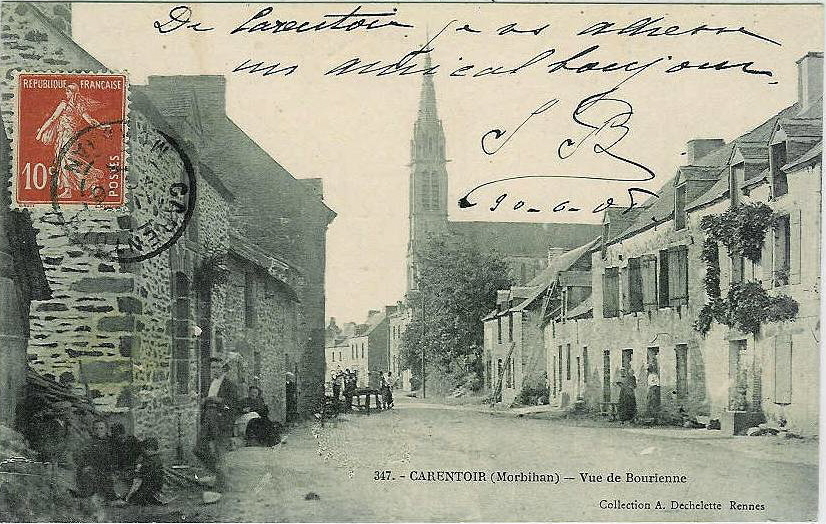 De Carentoir je vs adresse
un amical bonjour
SB
REPUBLIQUE FRANÇAISE
10c
POSTES
CAREN
347. - CARENTOIR (Morbihan) — Vue de Bourienne
Collection A. Dechelette Rennes